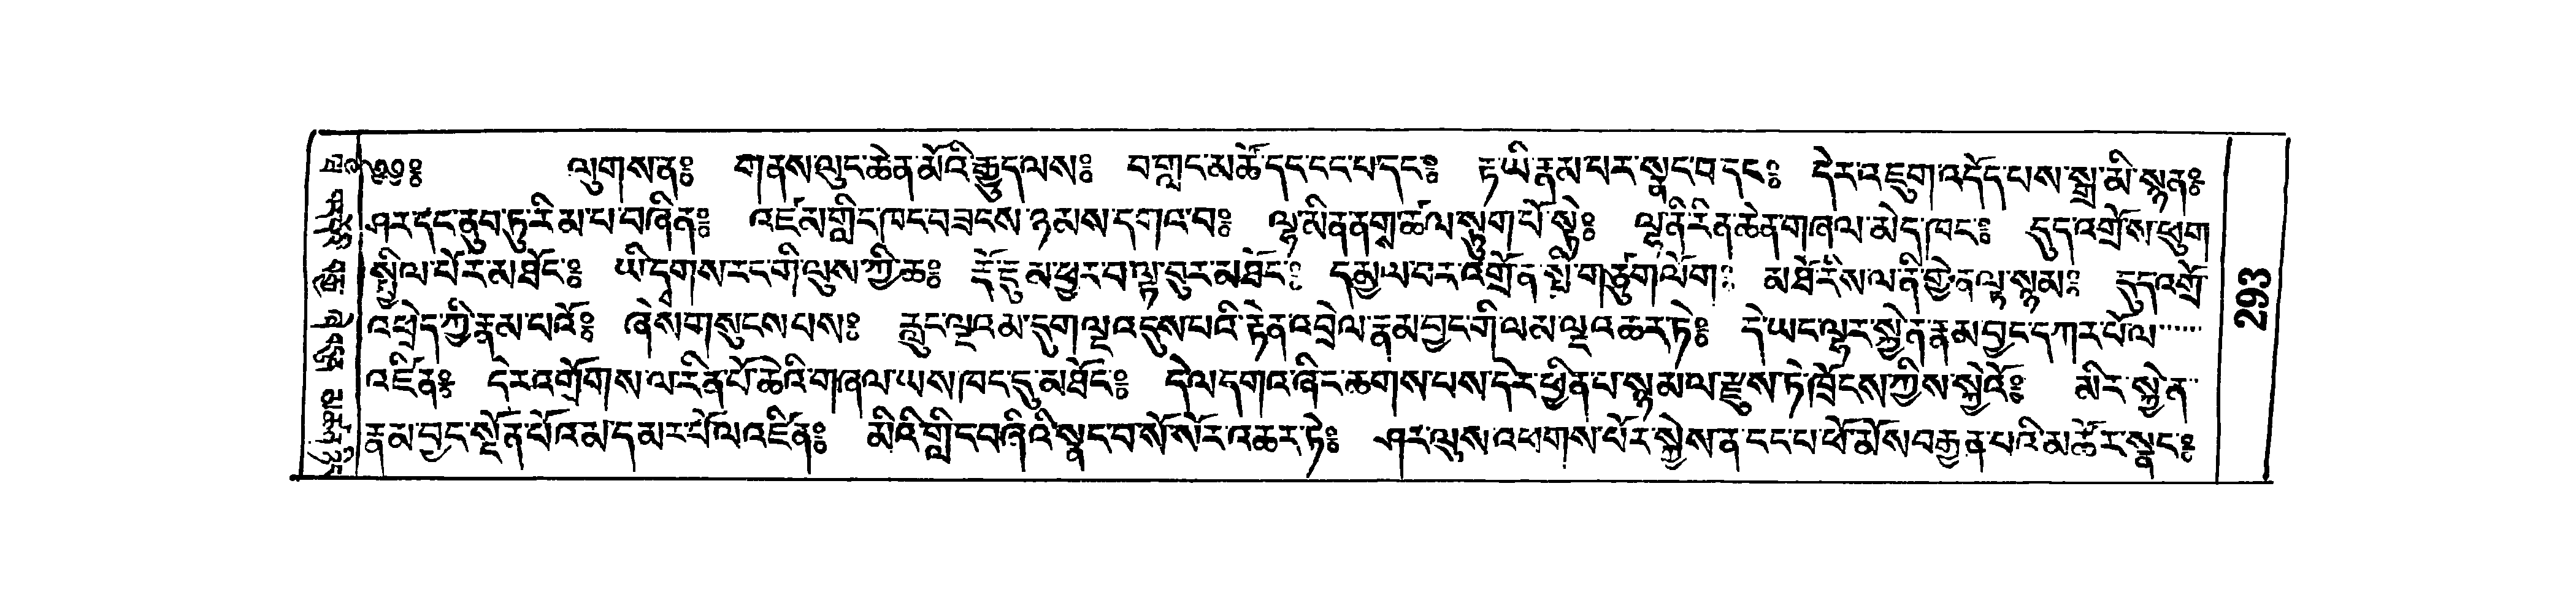 ༄༅༅༔ ལུགས་ན༔ གནས་ལུང་ཆེན་མོའི་རྒྱུད་ལས༔ བ་གླང་མཚོ་དང་ངང་པ་དང༔ རྟ་ཡི་རྣམ་པར་སྣང་བ་དང༔ དེར་འཇུག་འདོད་པས་སྒྲ་མི་སྙན༔
ཤར་དང་ནུབ་ཏུ་རིམ་པ་བཞིན༔ འཛམ་གླིང་ཁང་བཟངས་ཉམས་དགའ་བ༔ ལྷ་མིན་ནགས་ཚལ་སྟུག་པོ་སྟེ༔ ལྷ་ནི་རིན་ཆེན་གཞལ་མེད་ཁང༔ དུད་འགྲོས་ཕུག
སྤྱིལ་པོ་རི་མཐོང༔ ཡི་དྭགས་རང་གི་ལུས་ཀྱི་ཆ༔ རྡོ་དུམ་ཕྱར་བ་ལྟ་བུར་མཐོང༔ དམྱལ་བར་འགྲོ་ན་སྤྱི་གཙུག་ལོག༔ མཐོ་རིས་ལ་ནི་གྱེན་ལྟ་སྙམ༔ དུད་འགྲོ
འཕྲེད་ཀྱི་རྣམ་པའོ༔ ཞེས་གསུངས་པས༔ རླུང་ལྔ་འམ་དུག་ལྔ་འདུས་པའི་རྟེན་འབྲེལ་རྣམ་བྱང་གི་ལམ་ལྔ་འཆར་ཏེ༔ དེ་ཡང་ལྷར་སྐྱེ་ན་རྣམ་བྱང་དཀར་པོ་ལ་་་་་
འཛིན༔ དེར་འགྲོགས་ལ་རིན་པོ་ཆེའི་གཞལ་ཡས་ཁང་དུ་མཐོང༔ དེ་ལ་དགའ་ཞིང་ཆགས་པས་དེར་ཕྱིན་པ་སྙམ་ལ་རྫུས་ཏེ་ཁྲོངས་ཀྱིས་སྐྱེའོ༔ མིར་སྐྱེ་ན་
རྣམ་བྱང་སྔོན་པོ་འམ་དམར་པོ་ལ་འཛིན༔ མིའི་གླིང་བཞིའི་སྣང་བ་སོ་སོར་འཆར་ཏེ༔ ཤར་ལུས་འཕགས་པོར་སྐྱེས་ན་ངང་པ་ཕོ་མོས་བརྒྱན་པའི་མཚོར་སྣང༔